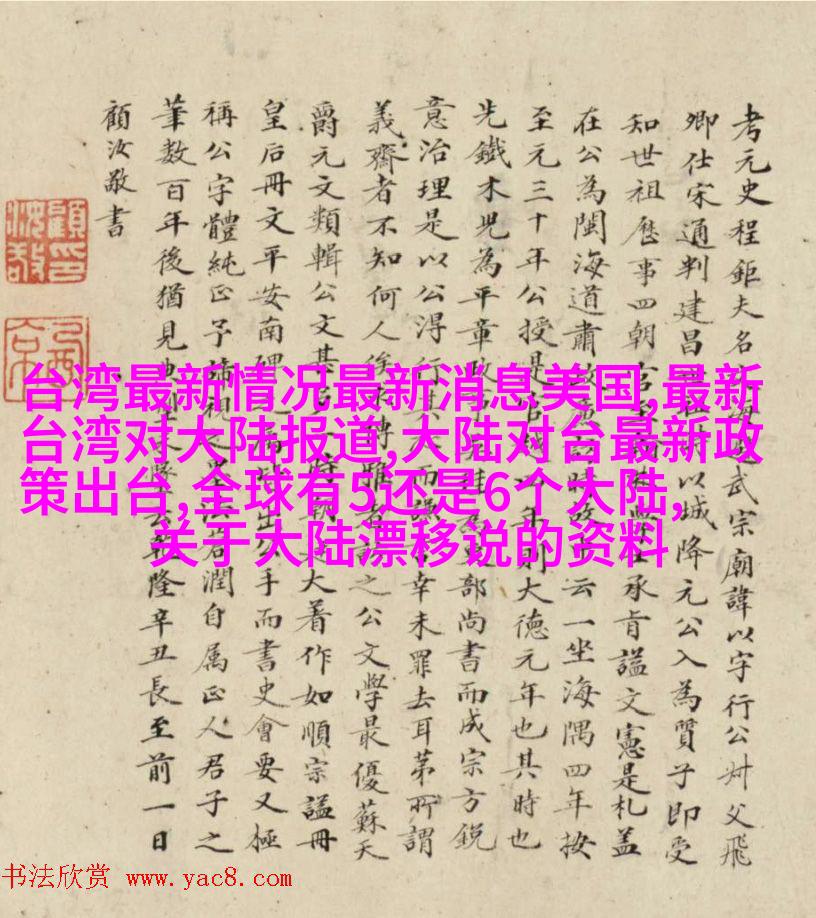 考元史程鉅夫名海武宗廟諱以字行公叔父飛
卿仕宋通判建昌以城降元公入為質子即受
知世祖歷事四朝承旨諡文憲是札蓋
在公為閩海道肅云一坐海隅四年按
至元三十年公授是則大德元年也其時也
先鐵木兒為平章部尚書而成宗方銳
意治理是以公得而幸未罪去耳苐所謂
義齋者不知何人俟之公文學最優蘇天
爵元文類輯公文甚大著作如順宗諡冊
皇后冊文平安南碑出公手而書史會要又極
稱公字體純正子若潤自属正人君子之
筆数百年後猶見隆辛丑長至前一日
顧汝敬書
台湾最新情况最新消息美国,最新
台湾对大陆报道,大陆对台最新政
策出台,全球有5还是6个大陆,
关于大陆漂移说的资料
书法欣赏 www.yac8.com